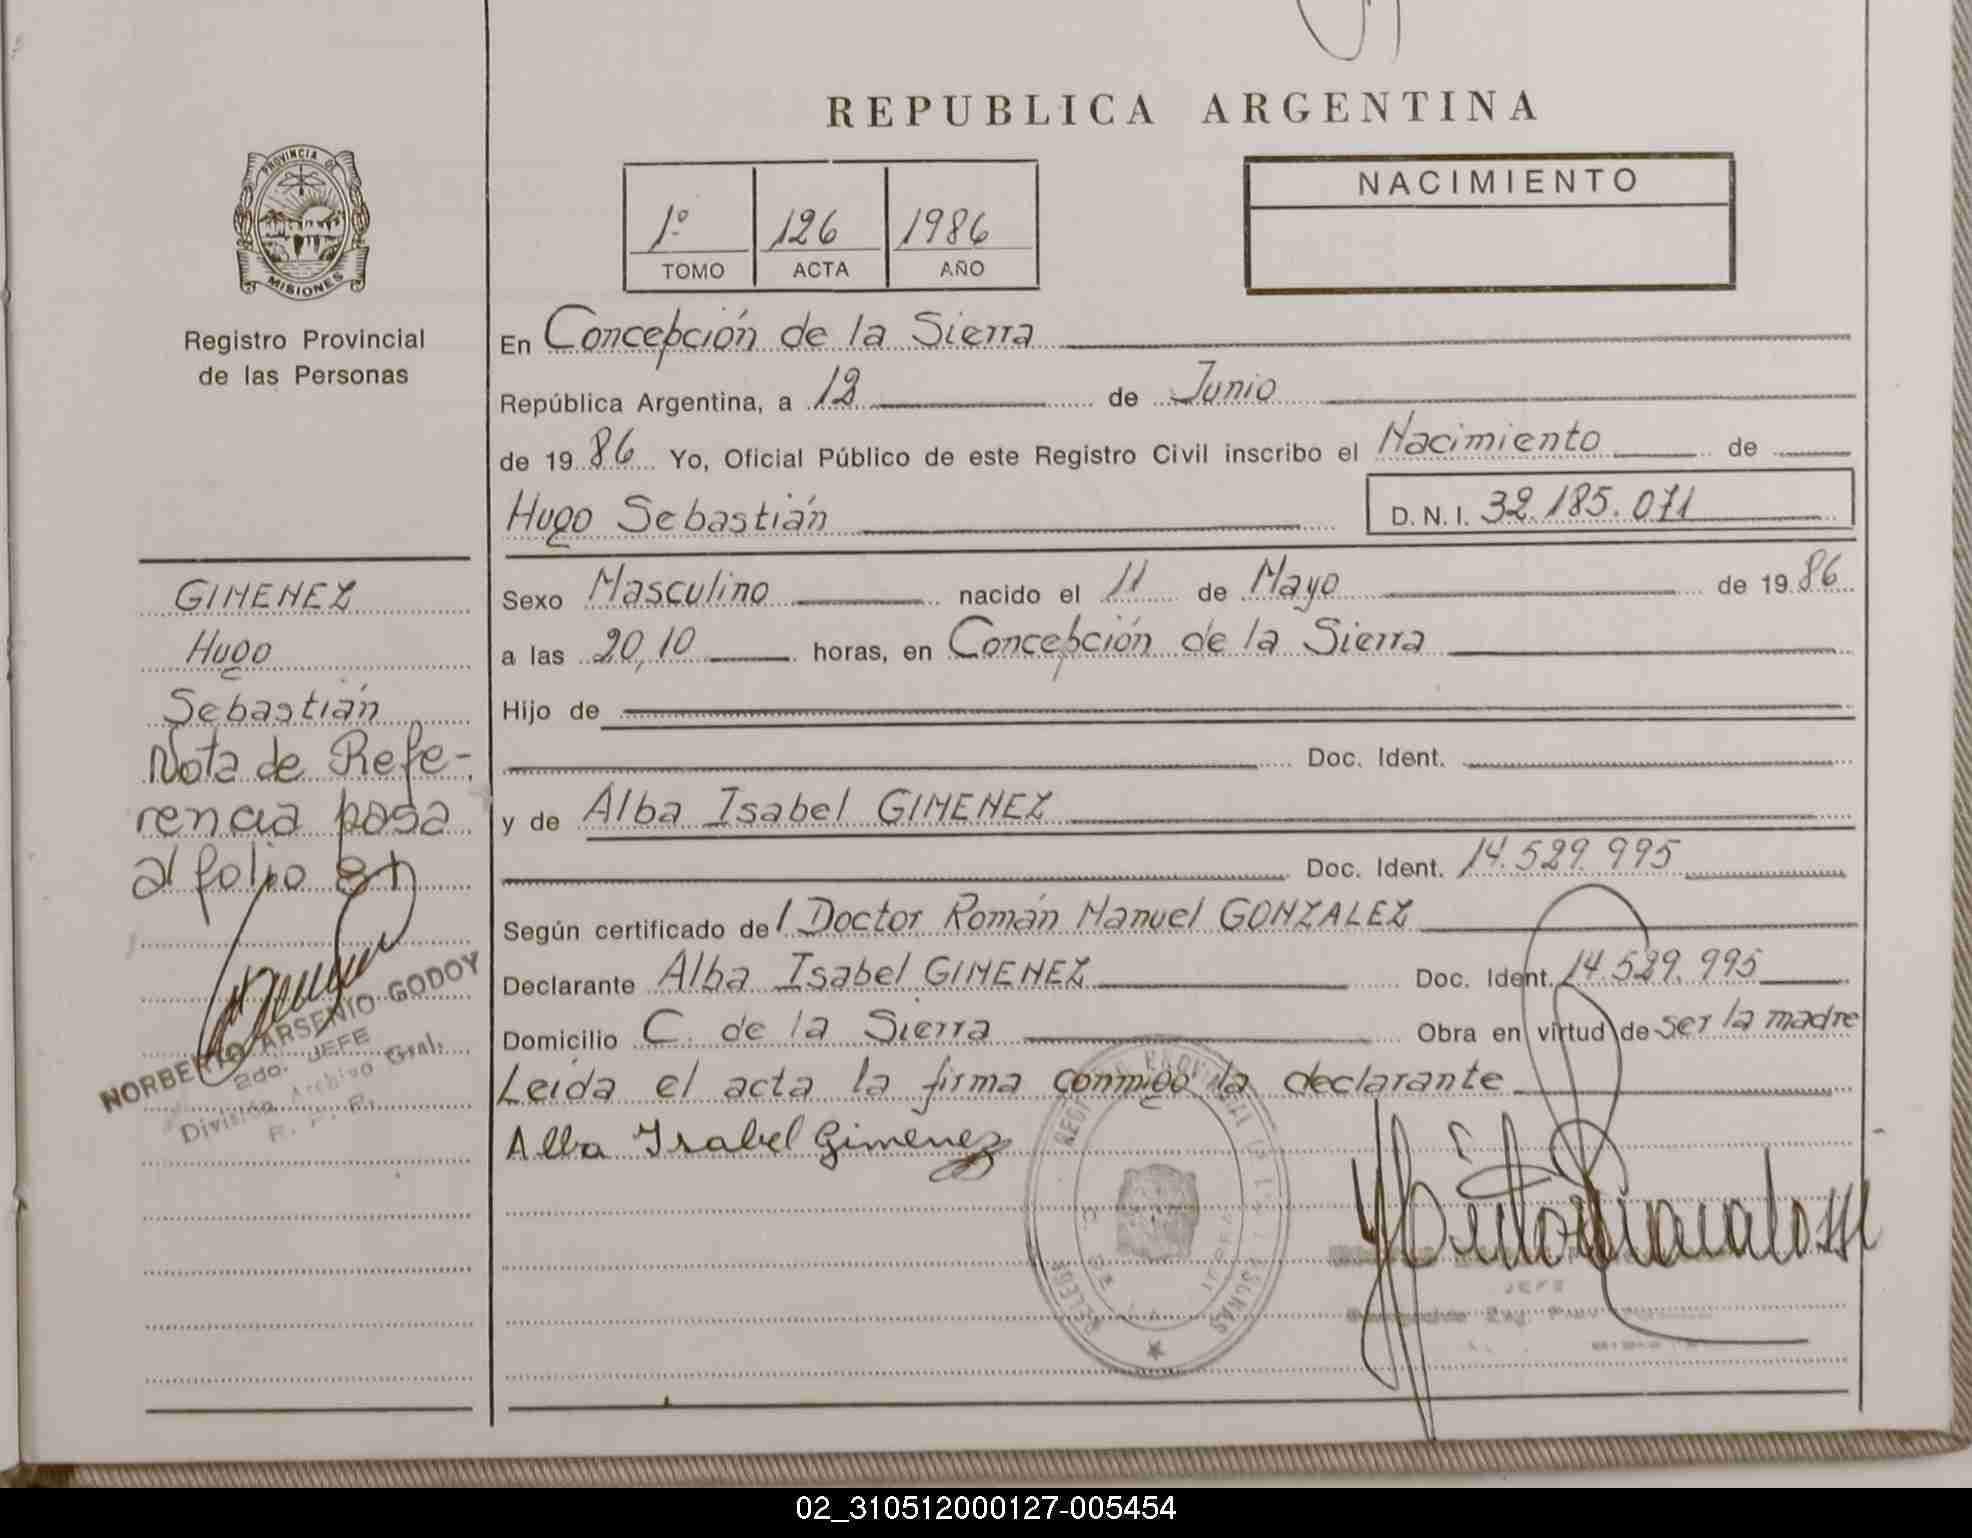 REPUBLICA ARGENTINA
PROVINCIA DE
MISIONES
Registro Provincial
de las Personas
1º 126 1986
TOMO ACTA AÑO
NACIMIENTO
En Concepción de la Sierra
República Argentina, a 12 de Junio
de 1986 Yo, Oficial Público de este Registro Civil inscribo el Nacimiento de
Hugo Sebastián D.N.I. 32.185.071
GIMENEZ
Hugo
Sebastián
Nota de Refe-
rencia pasa
al folio
NORBERTO ARSENIO GODOY
2do. JEFE
División Archivo Gral.
R. P. P.
Sexo Masculino nacido el 11 de Mayo de 1986
a las 20,10 horas, en Concepción de la Sierra
Hijo de
Doc. Ident.
y de Alba Isabel GIMENEZ
Doc. Ident. 14.529.995
Según certificado del Doctor Román Manuel GONZALEZ
Declarante Alba Isabel GIMENEZ Doc. Ident. 14.529.995
Domicilio C. de la Sierra Obra en virtud de ser la madre
Leída el acta la firma conmigo la declarante
Alba Isabel Gimenez
JEFE
02_310512000127-005454